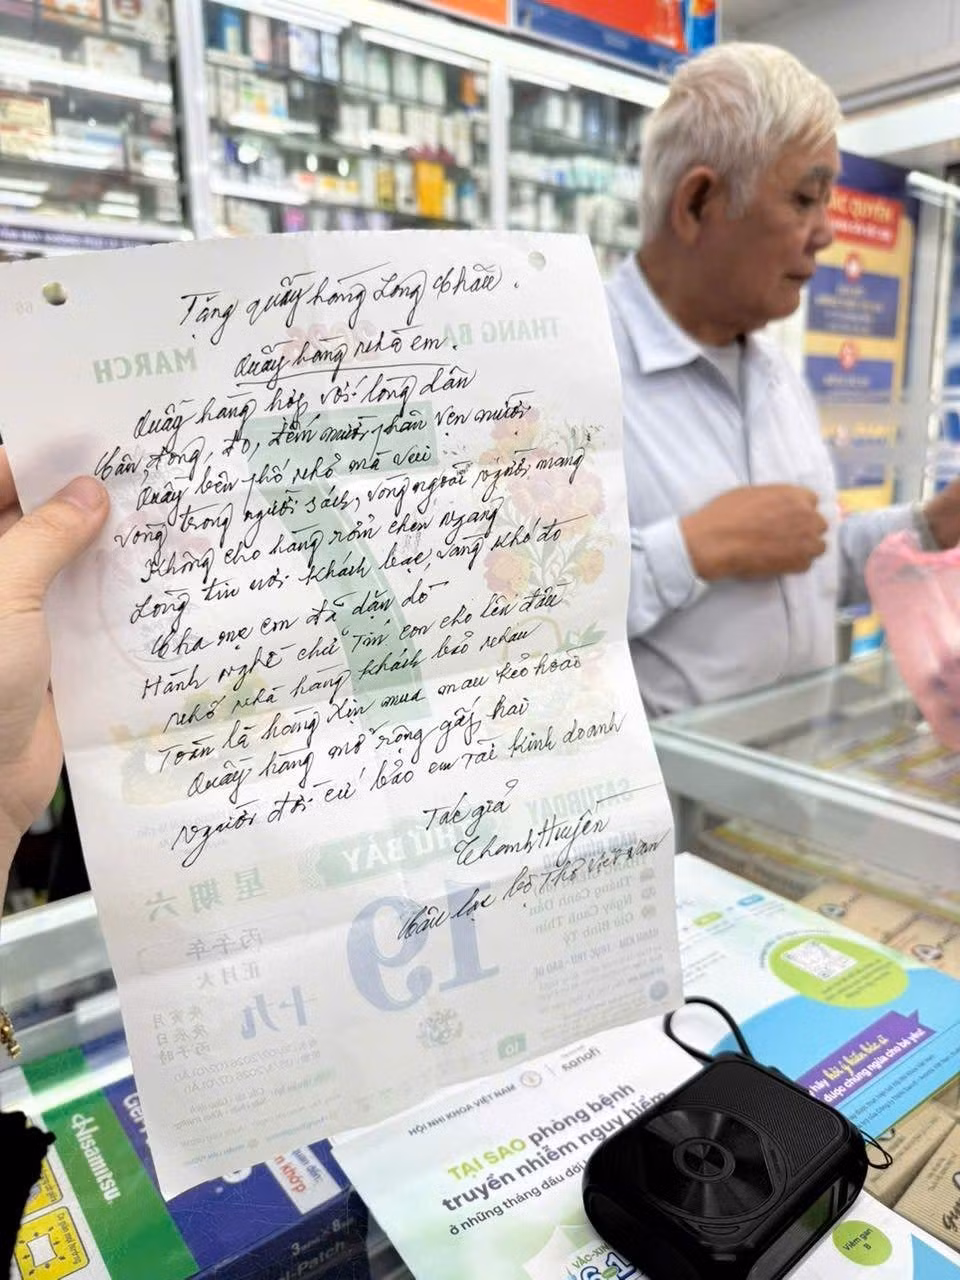 Tặng quầy hàng Long Châu.
Quầy hàng nhà em.
Quầy hàng hợp với lòng dân
Cân đong, đo, đếm mười phân vẹn mười
Quầy bên phố nhỏ mà vui
Vòng trong người sách, vòng ngoài người mang
Không cho hàng rởm chen ngang
Lòng tin với khách bạc, vàng khó đo
Cha mẹ em đã dặn dò
Hành nghề chữ Tín con cho lên đầu
nhớ nhà hàng khách bảo nhau
Toàn là hàng xịn mua mau kẻo hoài
Quầy hàng mở rộng gấp hai
Người đời cứ bảo em Tài kinh doanh
Tác giả
Thanh Huyền
Câu lạc bộ Thơ Việt Nam
THÁNG BA
MARCH
7
SATURDAY
THỨ BẢY
星期六
19
十九
丙午年
正月大
Tháng Canh Dần
HỘI NHI KHOA VIỆT NAM
sanofi
TẠI SAO phòng bệnh
truyền nhiễm nguy hiểm
ở những tháng đầu đời
VẮC-XIN
6 1
Viêm gan
B
hãy hỏi ý kiến bác sĩ
được chủng ngừa cho bé yêu!
Hisamitsu
khớp